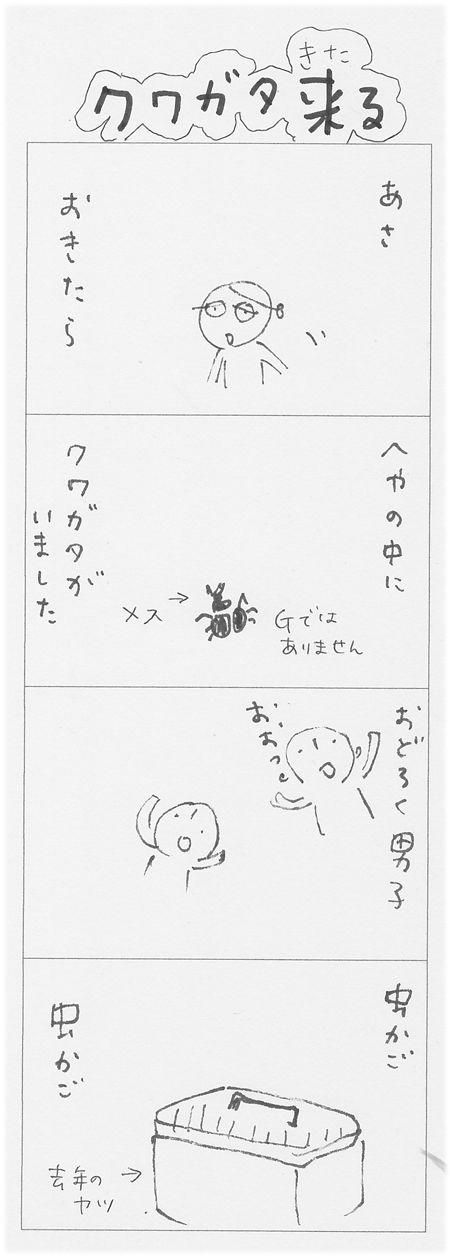 きた
クワガタ来る
あさ
おきたら
へやの中に
Gでは
ありません
メス→
クワガタが
いました
おどろく男子
お、
おっ
虫かご
虫かご
去年の→
ヤツ